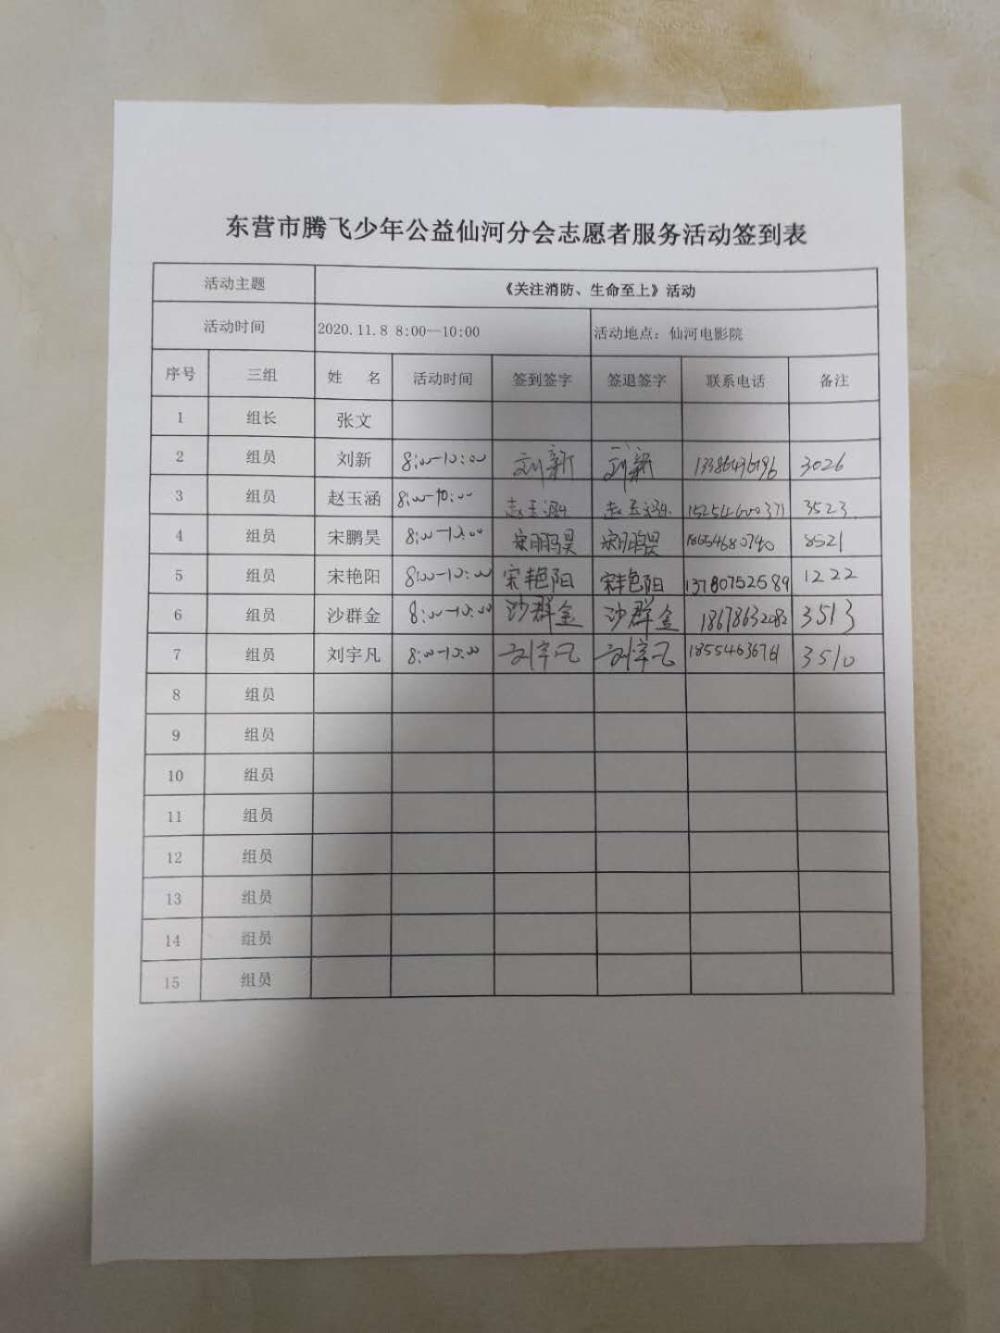 东营市腾飞少年公益仙河分会志愿者服务活动签到表
活动主题 《关注消防、生命至上》活动
活动时间 2020.11.8 8:00—10:00 活动地点：仙河电影院
序号 三组 姓 名 活动时间 签到签字 签退签字 联系电话 备注
1 组长 张文
2 组员 刘新 8:00-10:00 刘新 刘新 3026
3 组员 赵玉涵 8:00-10:00 赵玉涵 赵玉涵 15254600371 3523
4 组员 宋鹏昊 8:00-10:00 宋鹏昊 宋鹏昊 18654680740 8521
5 组员 宋艳阳 8:00-10:00 宋艳阳 宋艳阳 13780752589 1222
6 组员 沙群金 8:00-10:00 沙群金 沙群金 3513
7 组员 刘宇凡 8:00-10:00 刘宇凡 刘宇凡 18554636761 3510
8 组员
9 组员
10 组员
11 组员
12 组员
13 组员
14 组员
15 组员